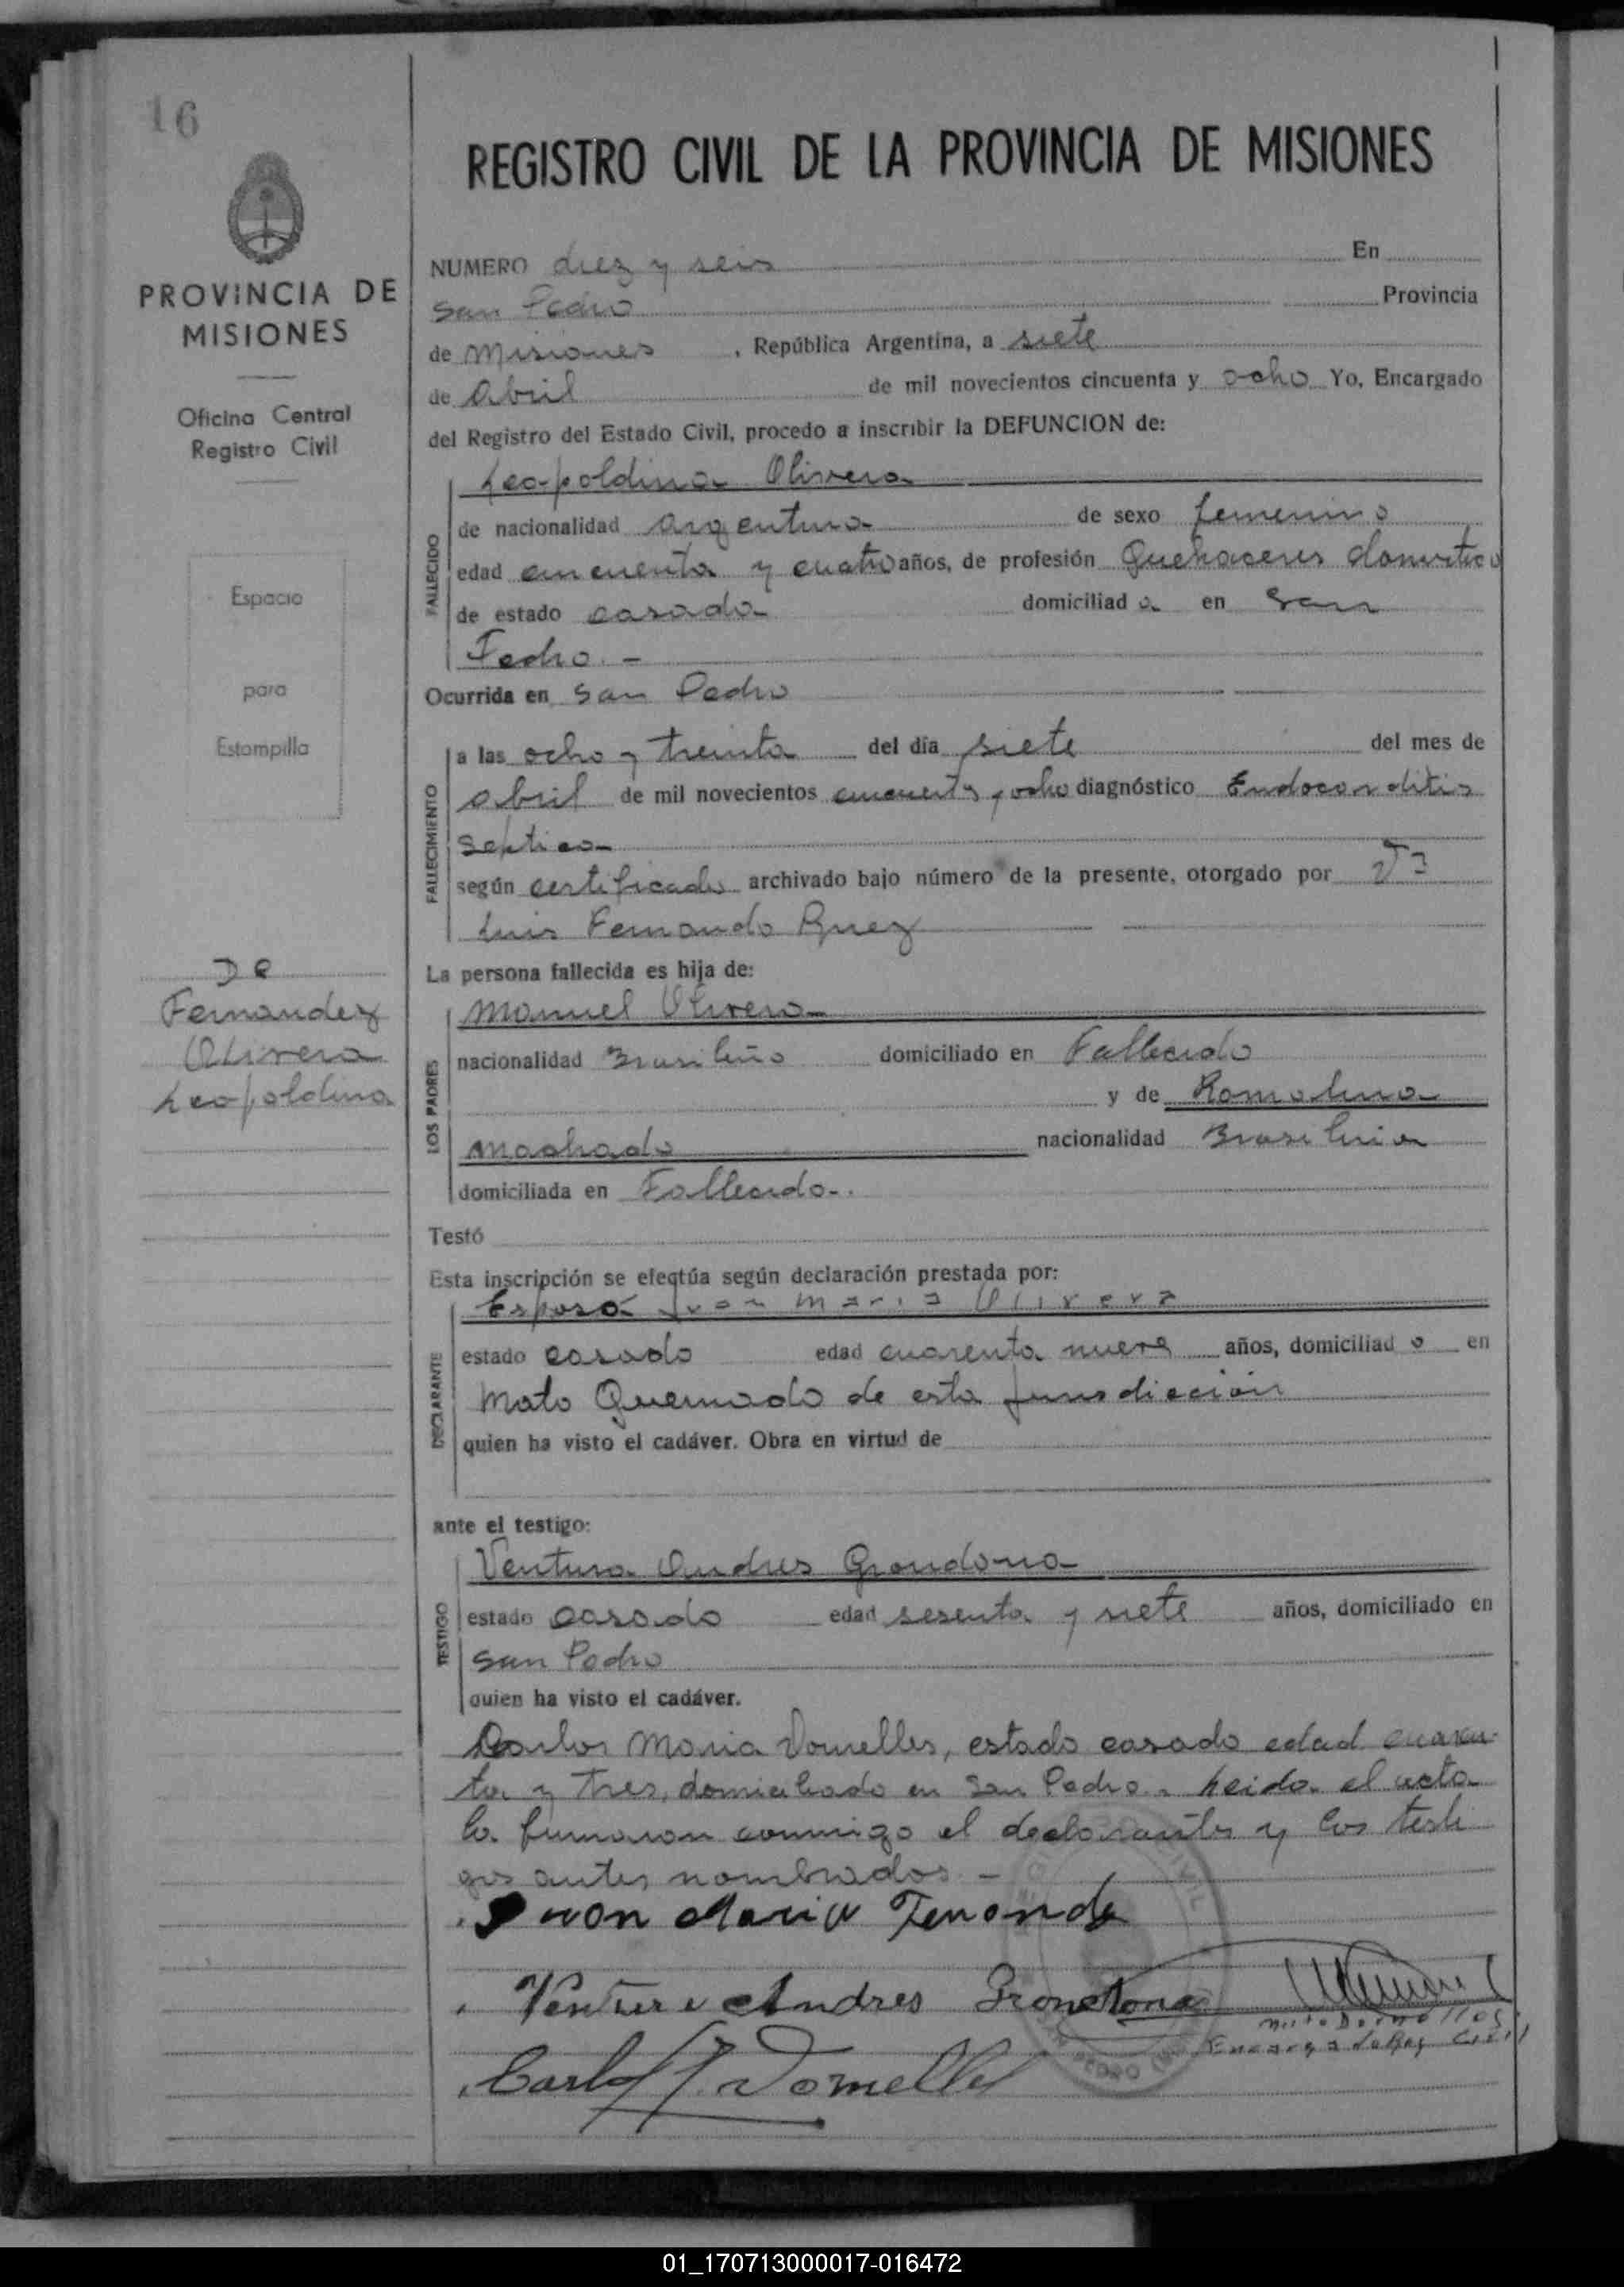 16
PROVINCIA DE
MISIONES
Oficina Central
Registro Civil
Espacio
para
Estampilla
De
Fernandez
Olivera
Leopoldina
REGISTRO CIVIL DE LA PROVINCIA DE MISIONES
NUMERO diez y seis En
San Pedro Provincia
de Misiones , República Argentina, a siete
de Abril de mil novecientos cincuenta y ocho Yo, Encargado
del Registro del Estado Civil, procedo a inscribir la DEFUNCION de:
Leopoldina Olivera
FALLECIDO
de nacionalidad argentina de sexo femenino
edad cincuenta y cuatro años, de profesión Quehaceres domestico
de estado casada domiciliad a en San
Pedro. -
Ocurrida en San Pedro
FALLECIMIENTO
a las ocho y treinta del día siete del mes de
abril de mil novecientos cincuenta y ocho diagnóstico Endocarditis
septica
según certificado archivado bajo número de la presente, otorgado por
Luis Fernando
La persona fallecida es hija de:
LOS PADRES
Manuel Olivera
nacionalidad Brasileño domiciliado en Fallecido
y de Romalina
Machado nacionalidad Brasileria
domiciliada en Fallecida.
Testó
Esta inscripción se efectúa según declaración prestada por:
DECLARANTE
Esposo Juan Maria Olivera
estado casado edad cuarenta nueve años, domiciliad o en
Mato Quemado de esta jurisdiccion
quien ha visto el cadáver. Obra en virtud de
ante el testigo:
TESTIGO
Ventura Andres Grondona
estado casado edad sesenta y siete años, domiciliado en
San Pedro
quien ha visto el cadáver.
Carlos Maria Dornelles, estado casado edad cuaren-
ta y tres, domiciliado en San Pedro. Leida el acta
la firmaron conmigo el declarante y los testi
gos antes nombrados. -
Juan Maria
Ventura Andres Grondona
Encargado Reg Civil
Carlos Dornelles
01_170713000017-016472